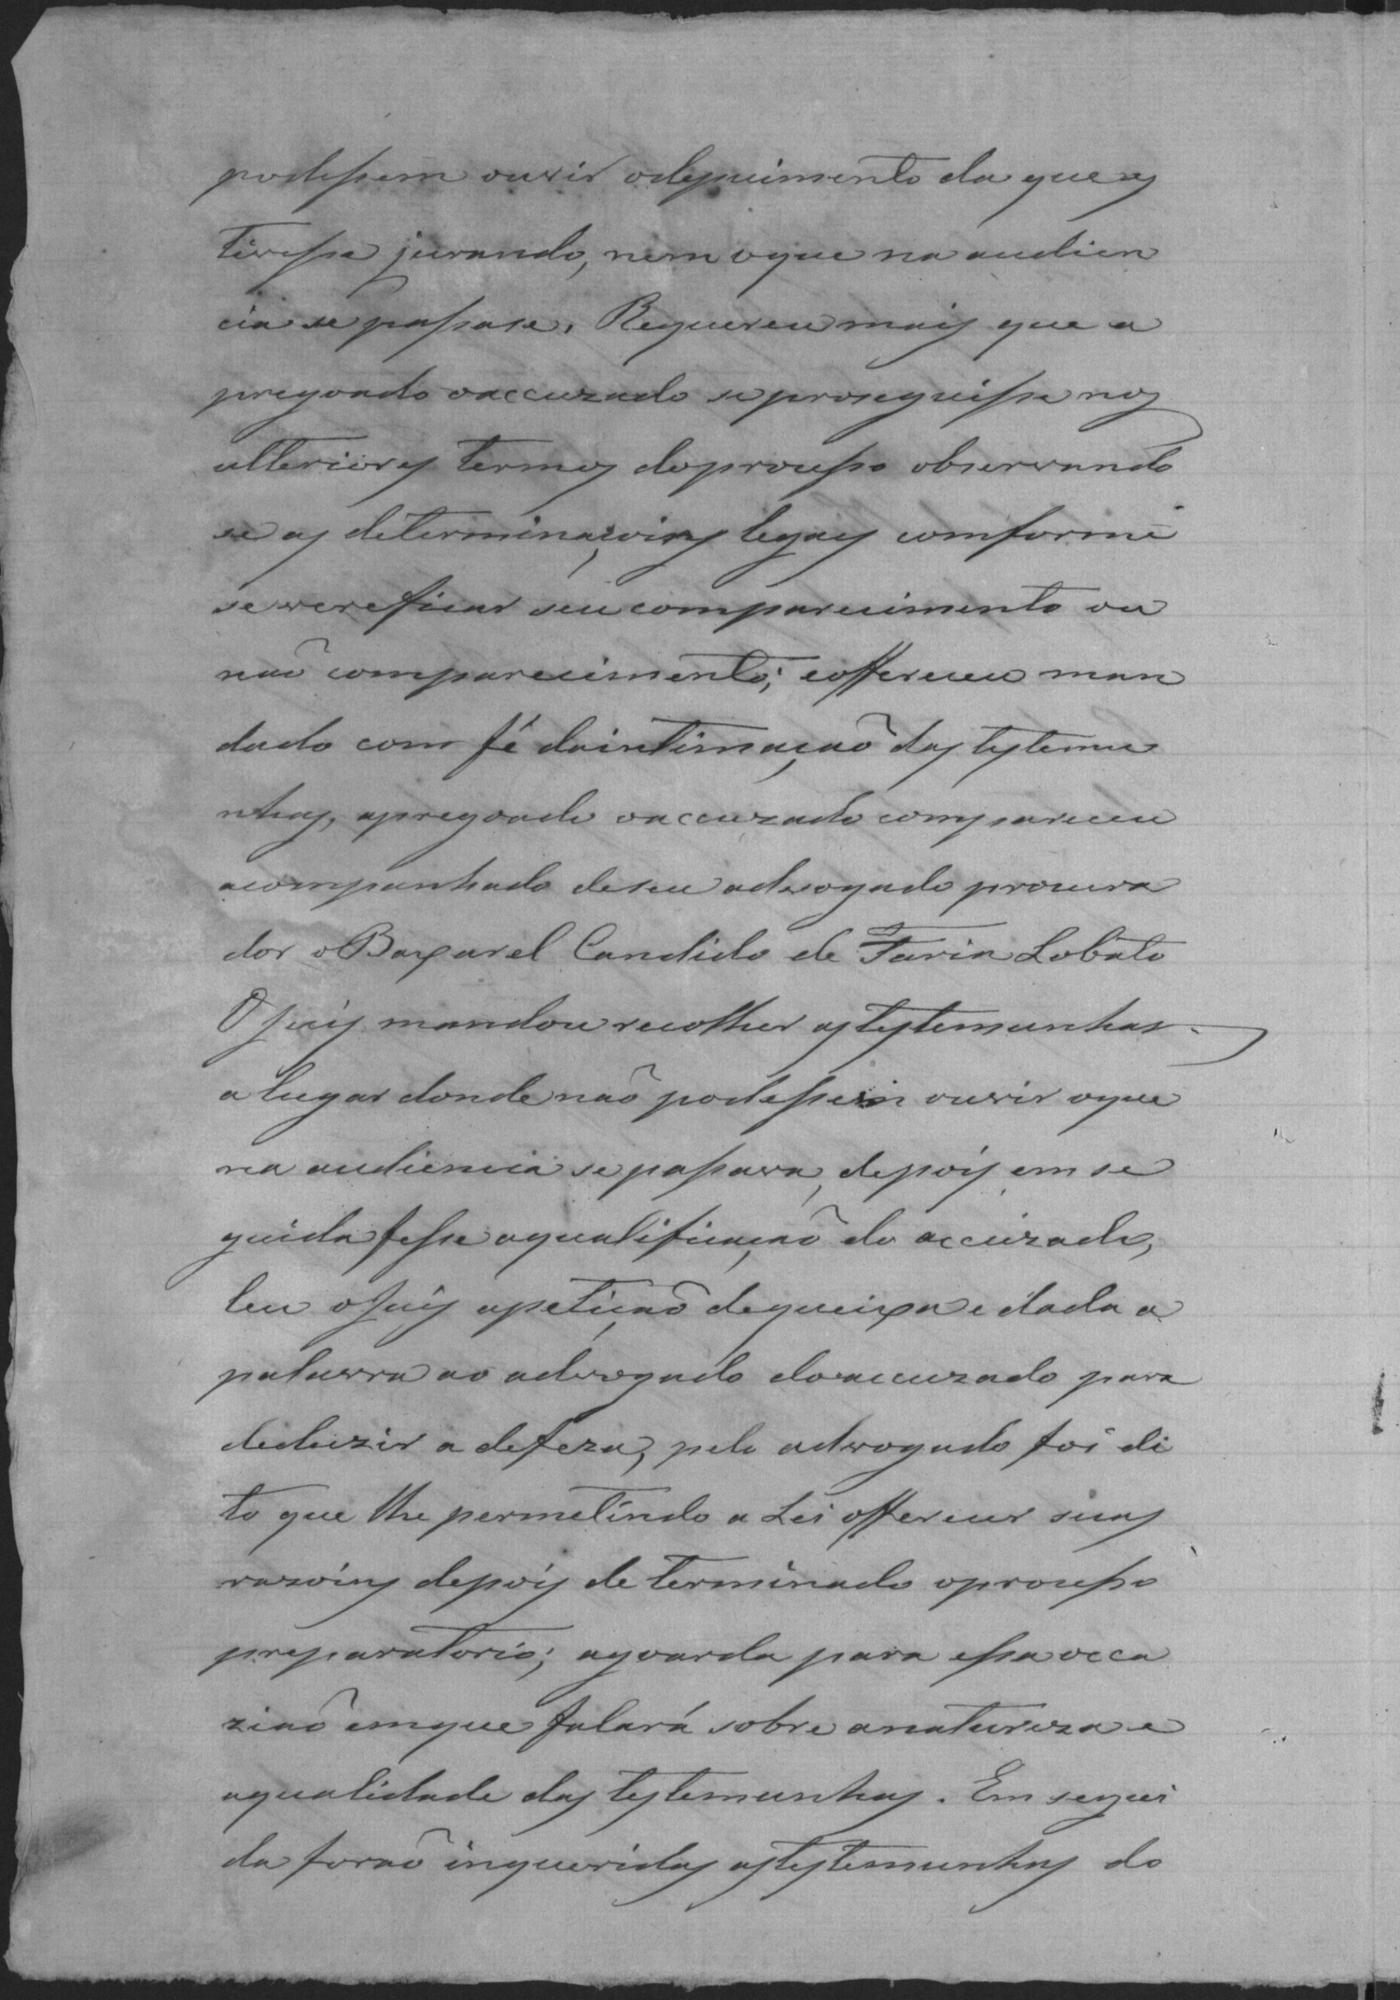 podessem ouvir odepuimento da que es
tivesse jurando, nem oque na audien
cia se passase. Requereu mais que a
pregoado oaccuzado se proseguisse nos
ulteriores termos doprocesso observando
se as determinaçoins legais comforme
se vereficar seu comparecimento ou
naõ comparecimento; eoffereceu man
dado com fé daintimaçaõ das testemu
nhas, apregoado oaccuzado compareceu
acompanhado deseu advogado procura
dor o Baxarel Candido de Faria Lobato
O Juis mandou recolher as testemunhas
a lugar donde naõ podessem ouvir oque
na audiencia se passava, depois em se
guida fesse aqualificaçaõ do accuzado,
leu o Juis apetiçaõ dequeixa e dada a
palavra ao advogado doaccuzado para
deduzir a defeza, pelo advogado foi di
to que lhe permetindo a Lei offerecer suas
razoins depois determinado oprocesso
preparatorio; agoarda para essa occa
ziaõ emque falará sobre anatureza e
aqualidade das testemunhas. Em segui
da foraõ inqueridas astestemunhas do